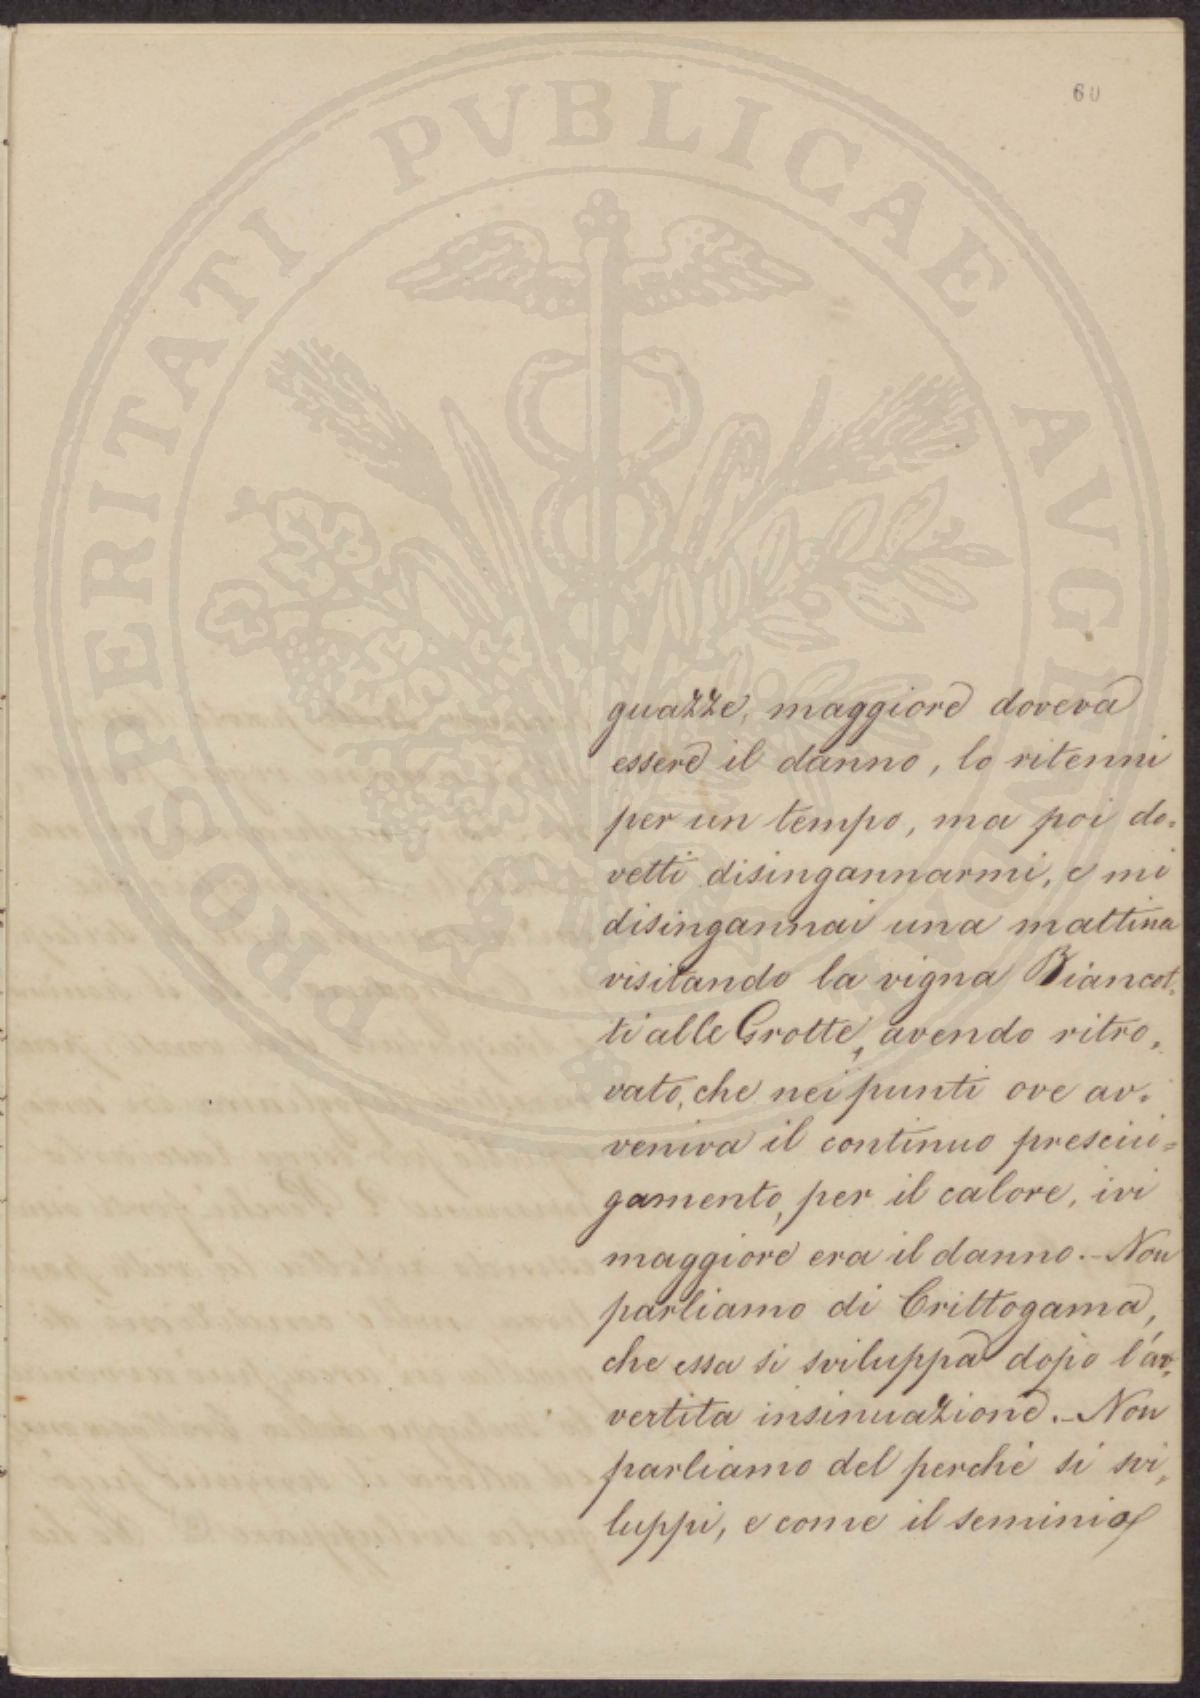 60
PROSPERITATI PVBLICAE AVGENDAE
guazze, maggiore doveva
essere il danno, lo ritenni
per un tempo, ma poi do=
vetti disingannarmi, e mi
disingannai una mattina
visitando la vigna Biancot=
ti alle Grotte, avendo ritro=
vato, che nei punti ove av=
veniva il continuo presciu=
gamento, per il calore, ivi
maggiore era il danno.- Non
parliamo di Crittogama,
che essa si sviluppa dopo l'av=
vertita insinuazione.- Non
parliamo del perchè si svi=
luppi, e come il semini